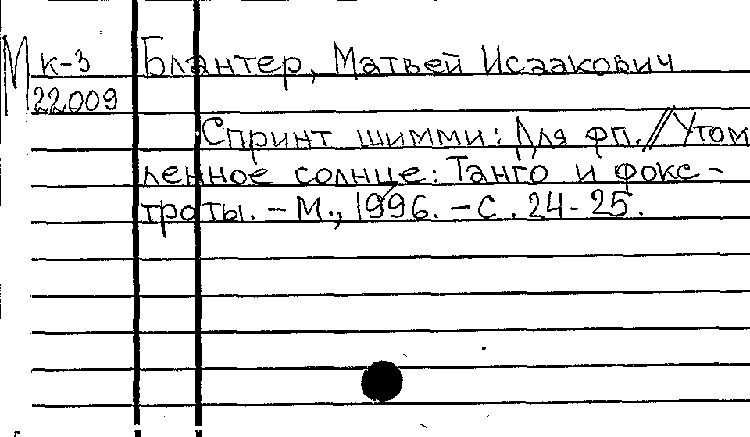 М к-3 Блантер, Матвей Исаакович
22009
Спринт шимми: Для фп.//Утом
ленное солнце: Танго и фокс-
троты. - М., 1996. - С. 24-25.